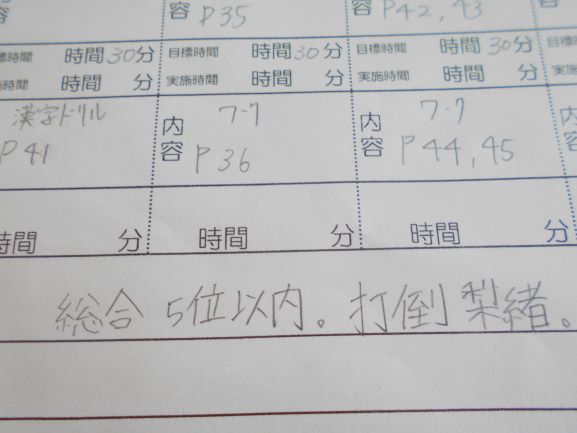 容 P35 容 P42,43
目標時間 時間30分 目標時間 時間30分 目標時間 時間30分
実施時間 時間 分 実施時間 時間 分 実施時間 時間 分
漢字ドリル 内容 ワーク 内容 ワーク
P41 P36 P44,45
時間 分 時間 分 時間 分
総合 5位以内。打倒 梨緒。